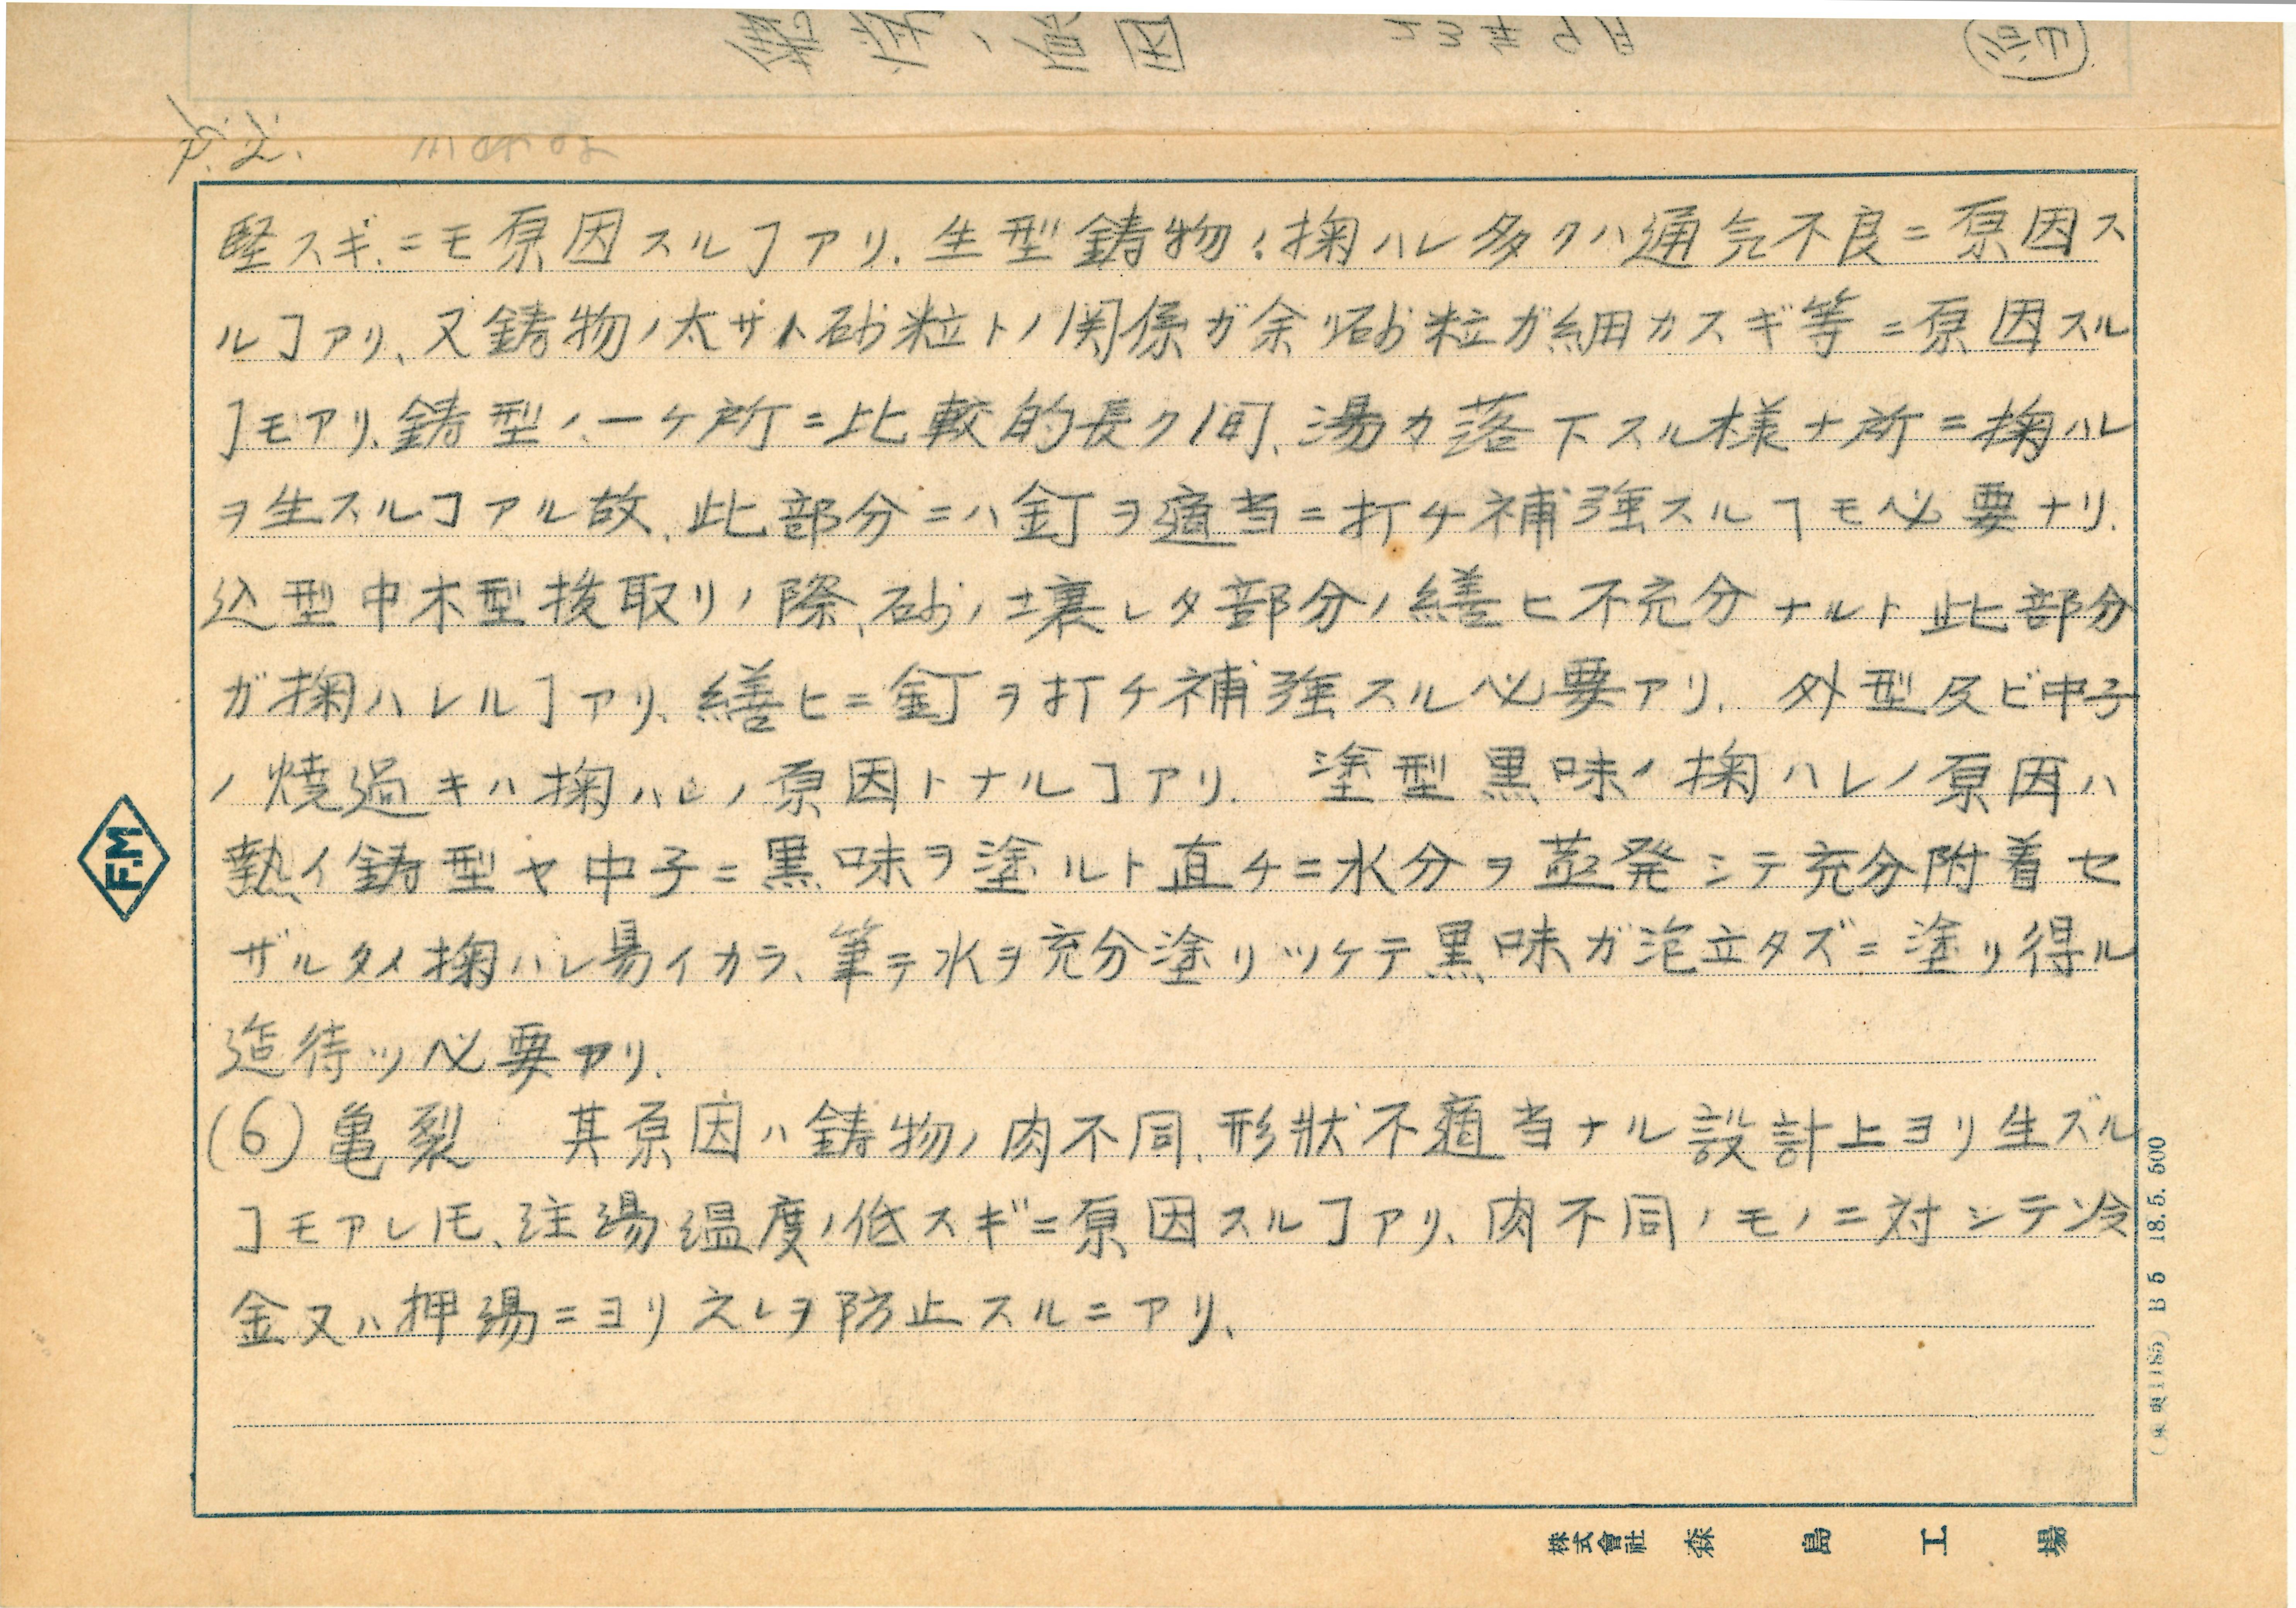 鋳造ノ原因 23年9月
P.2. memo
軽スギニモ原因スルヿアリ.生型鋳物ノ掬ハレ多クハ通気不良ニ原因ス
ルヿアリ、又鋳物ノ太サト砂粒トノ関係ガ余リ砂粒ガ細カスギ等ニ原因スル
ヿモアリ、鋳型ノ一ケ所ニ比較的長ク間、湯ガ落下スル様ナ所ニ掬ハレ
ヲ生スルヿアル故、此部分ニハ釘ヲ適当ニ打チ補強スルヿモ必要ナリ.
込型中木型抜取リノ際、砂ノ壊レタ部分ノ繕ヒ不充分ナルト此部分
ガ掬ハレルヿアリ、繕ヒニ釘ヲ打チ補強スル必要アリ. 外型及ビ中子
ノ焼過キハ掬ハレノ原因トナルヿアリ. 塗型黒味ノ掬ハレノ原因ハ
熱イ鋳型ヤ中子ニ黒味ヲ塗ルト直チニ水分ヲ蒸発シテ充分附着セ
ザルタメ掬ハレ易イカラ、筆テ水ヲ充分塗リツケテ黒味ガ泡立タズニ塗リ得ル
迄待ツ必要アリ.
(6)亀裂 其原因ハ鋳物ノ肉不同、形状不適当ナル設計上ヨリ生ズル
ヿモアレ𪜈、注湯温度ノ低スギニ原因スルヿアリ、肉不同ノモノニ対シテ冷
金又ハ押湯ニヨリ之レヲ防止スルニアリ、
F.M
B5 18.5.500
株式會社 森島工場